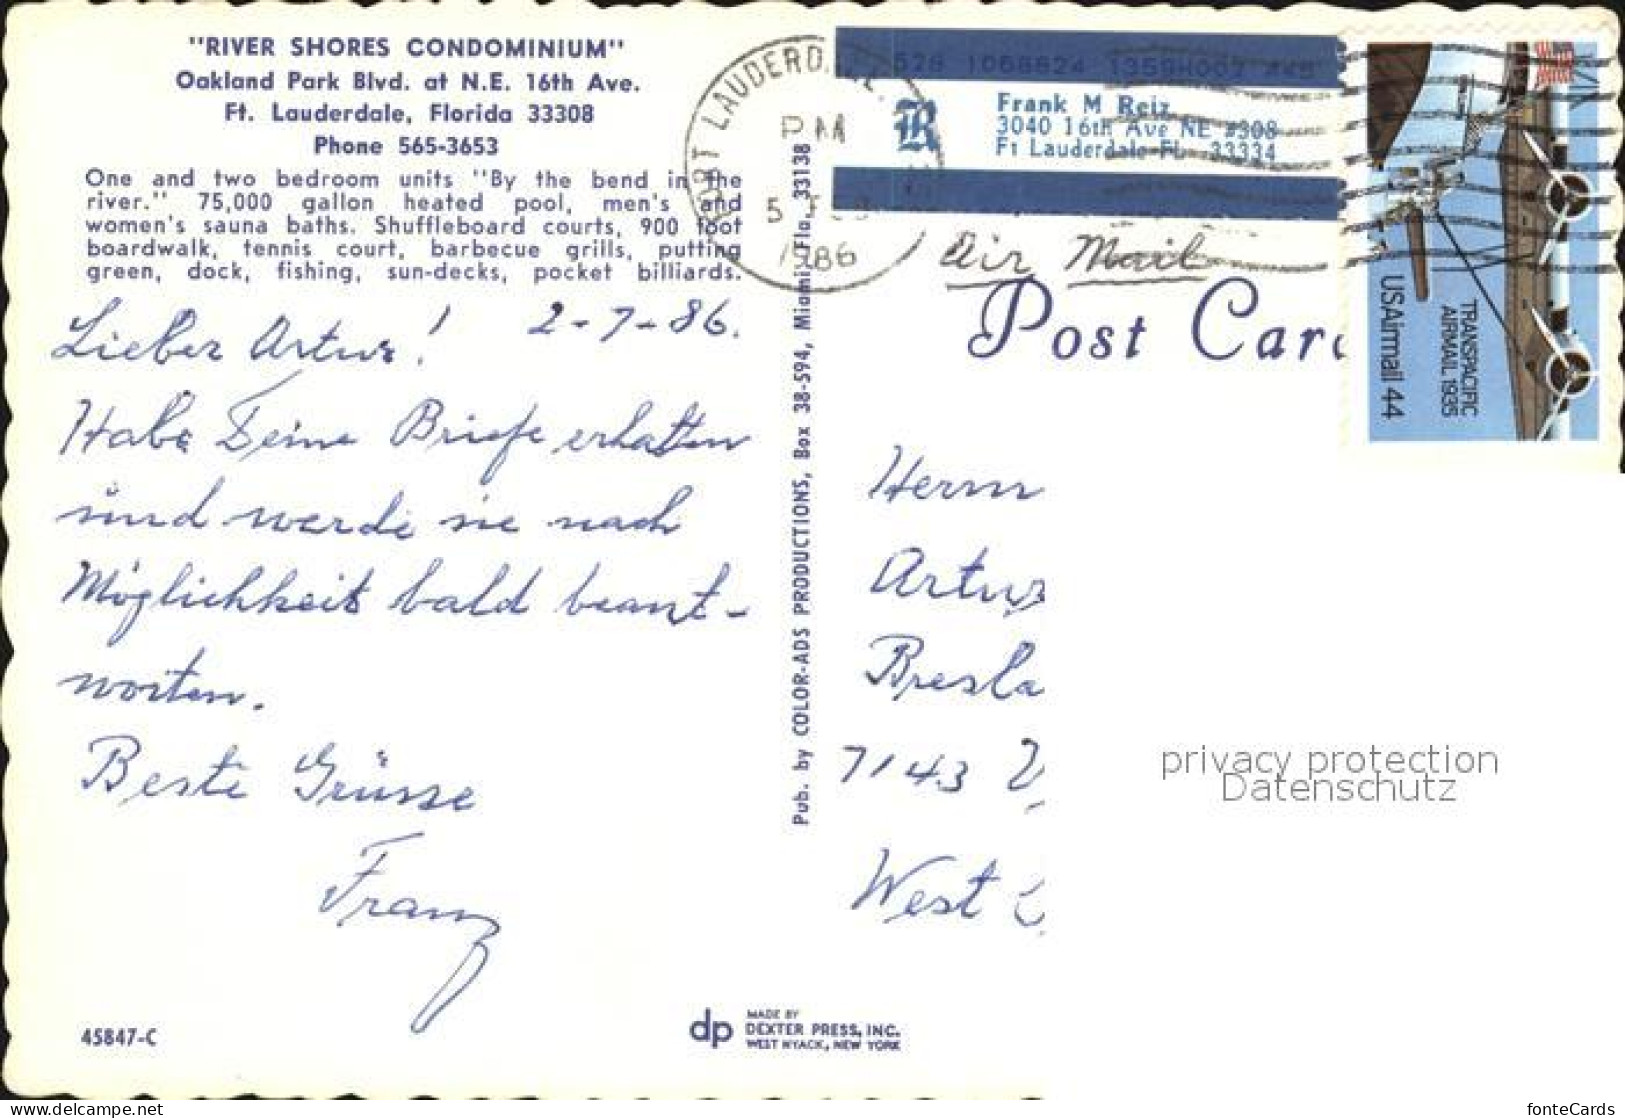 "RIVER SHORES CONDOMINIUM"
Oakland Park Blvd. at N.E. 16th Ave.
Ft. Lauderdale, Florida 33308
Phone 565-3653
One and two bedroom units "By the bend in the
river." 75,000 gallon heated pool, men's and
women's sauna baths. Shuffleboard courts, 900 foot
boardwalk, tennis court, barbecue grills, putting
green, dock, fishing, sun-decks, pocket billiards.
Lieber Artur! 2-7-86.
Habe Deine Briefe erhalten
und werde sie nach
Möglichkeit bald beant-
worten.
Beste Grüsse
Franz
45847-C
Pub. by COLOR-ADS PRODUCTIONS, Box 38-594, Miami, Fla. 33138
dp MADE BY
DEXTER PRESS, INC.
WEST NYACK, NEW YORK
FORT LAUDERDALE
PM
1986
R
Frank M Reiz
3040 16th Ave NE #308
Ft Lauderdale FL 33334
Air Mail
Post Car
USAirmail 44
TRANSPACIFIC
AIRMAIL 1935
Herrn
Artur
Bresla
7143
West
privacy protection
Datenschutz
www.delcampe.net
fonteCards